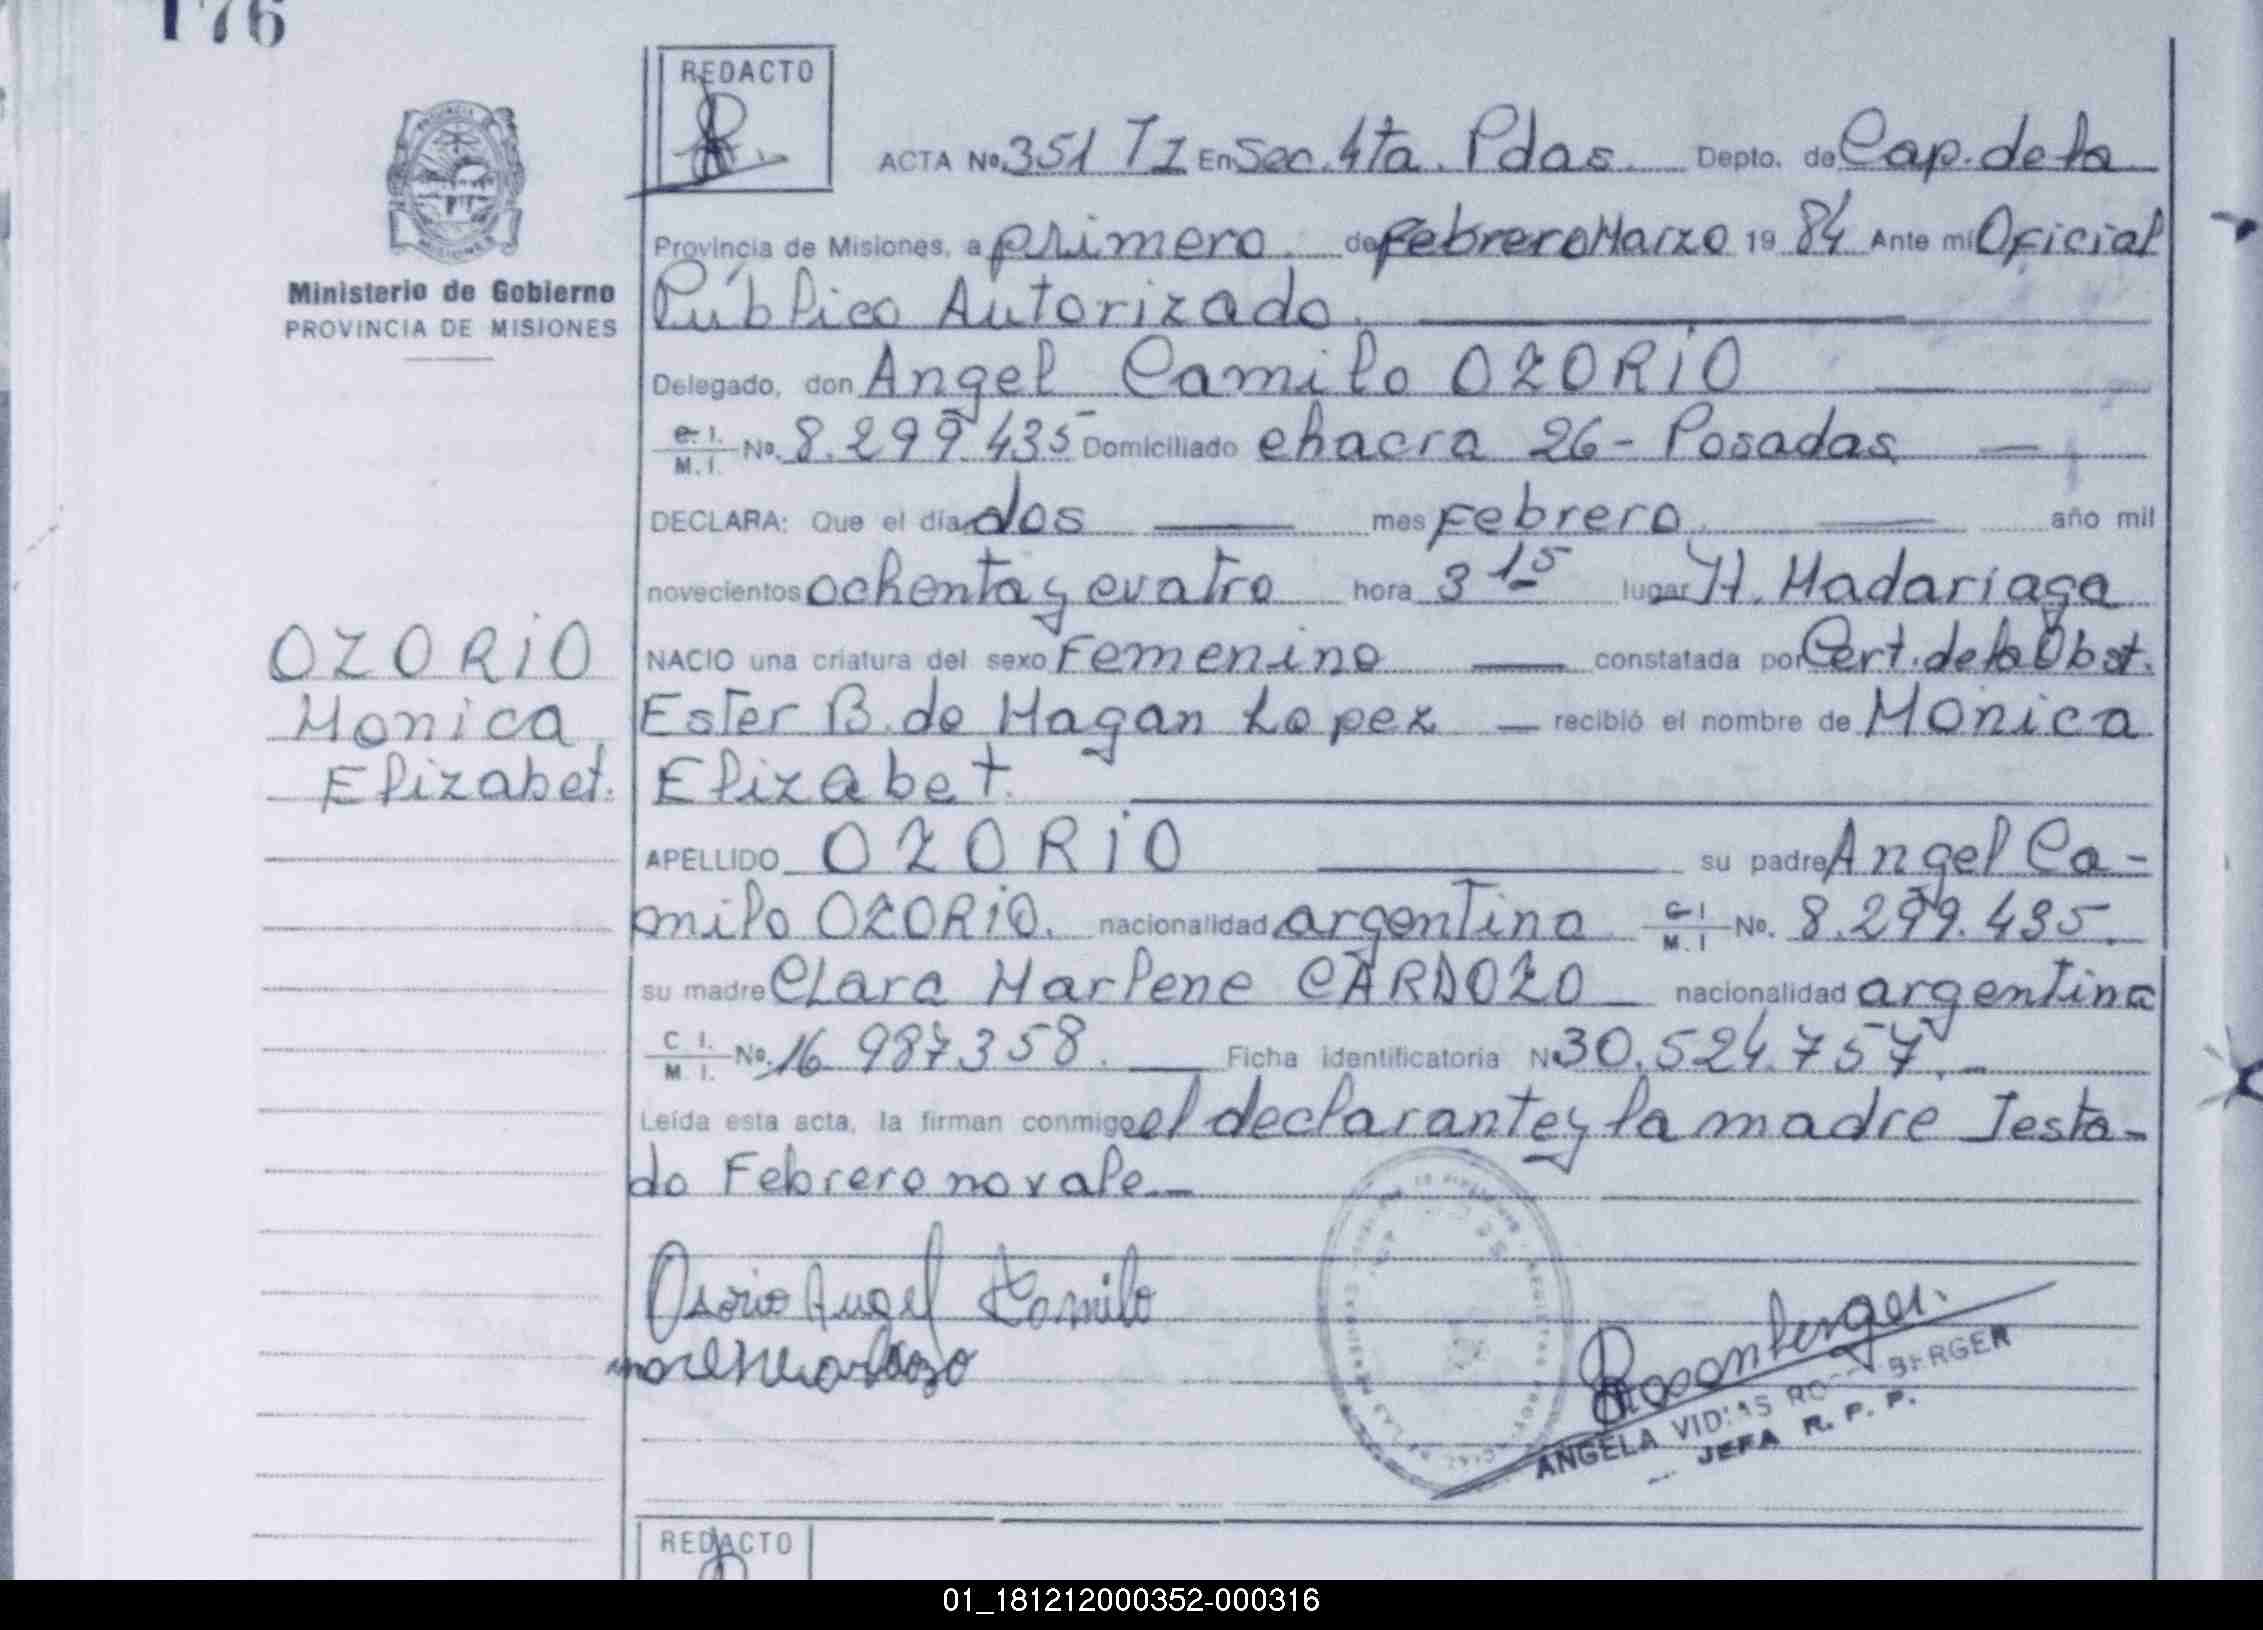 176
REDACTO
ACTA No. 351 T1 En Sec. 4ta. Pdas. Depto. de Cap. de la
Provincia de Misiones, a primero. de Febrero Marzo 19 84 Ante mi Oficial
Público Autorizado.
Ministerio de Gobierno
PROVINCIA DE MISIONES
Delegado, don Angel Camilo OZORIO
C. I. M. I. No. 8.299.435 Domiciliado chacra 26 - Posadas
DECLARA: Que el día dos mes Febrero. año mil
novecientos ochenta y cuatro hora 3 15 lugar H. Madariaga
NACIO una criatura del sexo Femenino constatada por Cert. de la Obst.
Ester B. de Magan Lopez recibió el nombre de Monica
Elizabet.
OZORIO
Monica
Elizabet.
APELLIDO OZORIO su padre Angel Ca-
milo OZORIO. nacionalidad argentina C. I. M. I. No. 8.299.435.
su madre Clara Marlene CARDOZO nacionalidad argentina
C. I. M. I. No. 16 987358. Ficha identificatoria N 30.524.757.
Leída esta acta, la firman conmigo el declarante y la madre Testa-
do Febrero no vale
Osorio Angel Camilo
Rosenberger.
ANGELA VIDIAS ROSENBERGER
JEFA R. P. P.
REDACTO
01_181212000352-000316